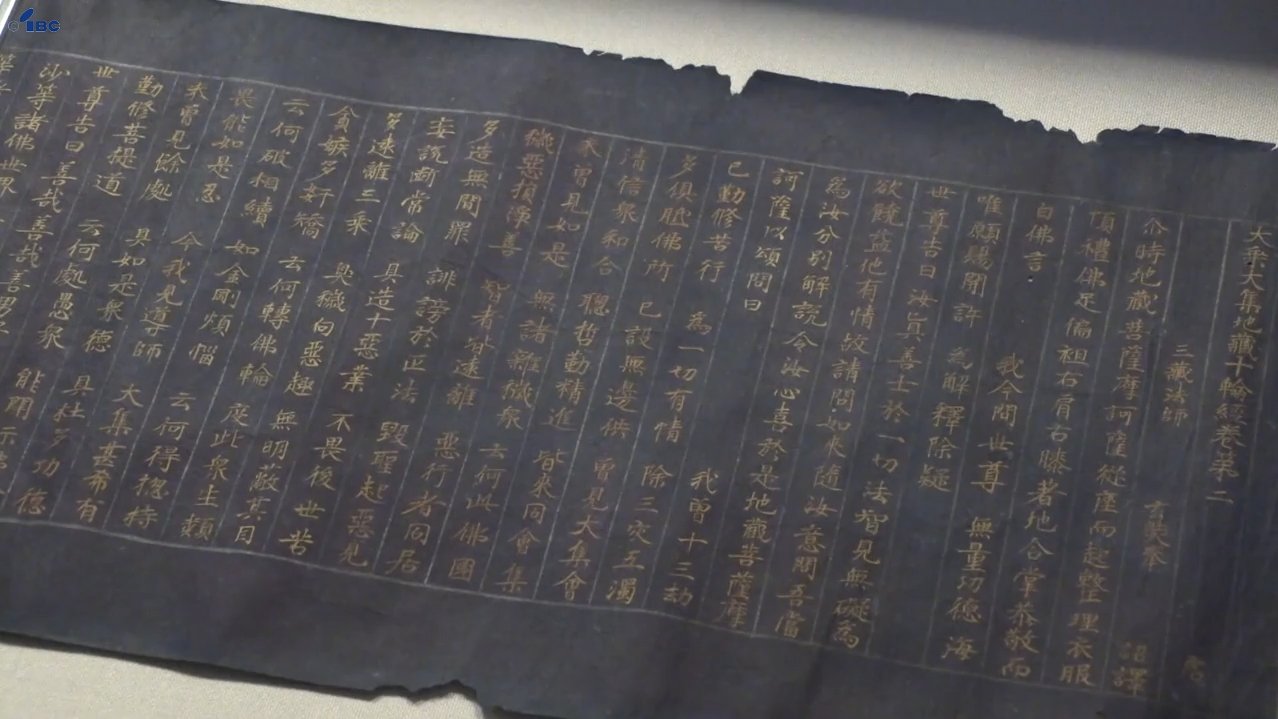 大乗大集地藏十輪經卷第二
唐
三藏法師 玄奘奉 詔譯
尒時地藏菩薩摩訶薩從座而起整理衣服
頂禮佛足偏袒右肩右膝著地合掌恭敬而
白佛言 我今問世尊 無量功德海
唯願賜聞許 為解釋除疑
世尊告曰汝真善士於一切法智見無礙為
欲饒益他有情故請問如來隨汝意問吾當
為汝分別解說令汝心喜於是地藏菩薩摩
訶薩以頌問曰 我曾十三劫
已勤修苦行 為一切有情 除三灾五濁
多俱胝佛所 已設無邊供 曾見大集會
清信衆和合 聰哲勤精進 皆來同會集
未曾見如是 無諸雜穢衆 云何此佛國
穢惡損淳善 智者皆遠離 惡行者同居
多造無間罪 誹謗於正法 毀聖起惡見
妄說斷常論 具造十惡業 不畏後世苦
多遠離三乘 臭穢向惡趣 無明蔽其目
貪嫉多奸矯 云何轉佛輪 度此衆生類
云何破相續 如金剛煩惱 云何得揔持
畏能如是忍 今我見導師 大集甚希有
未曾見餘處 具如是衆德 具杜多功德
勤修菩提道 云何處愚衆 能開示
世尊告曰善哉善哉善男子
沙等諸佛世界
© IBC